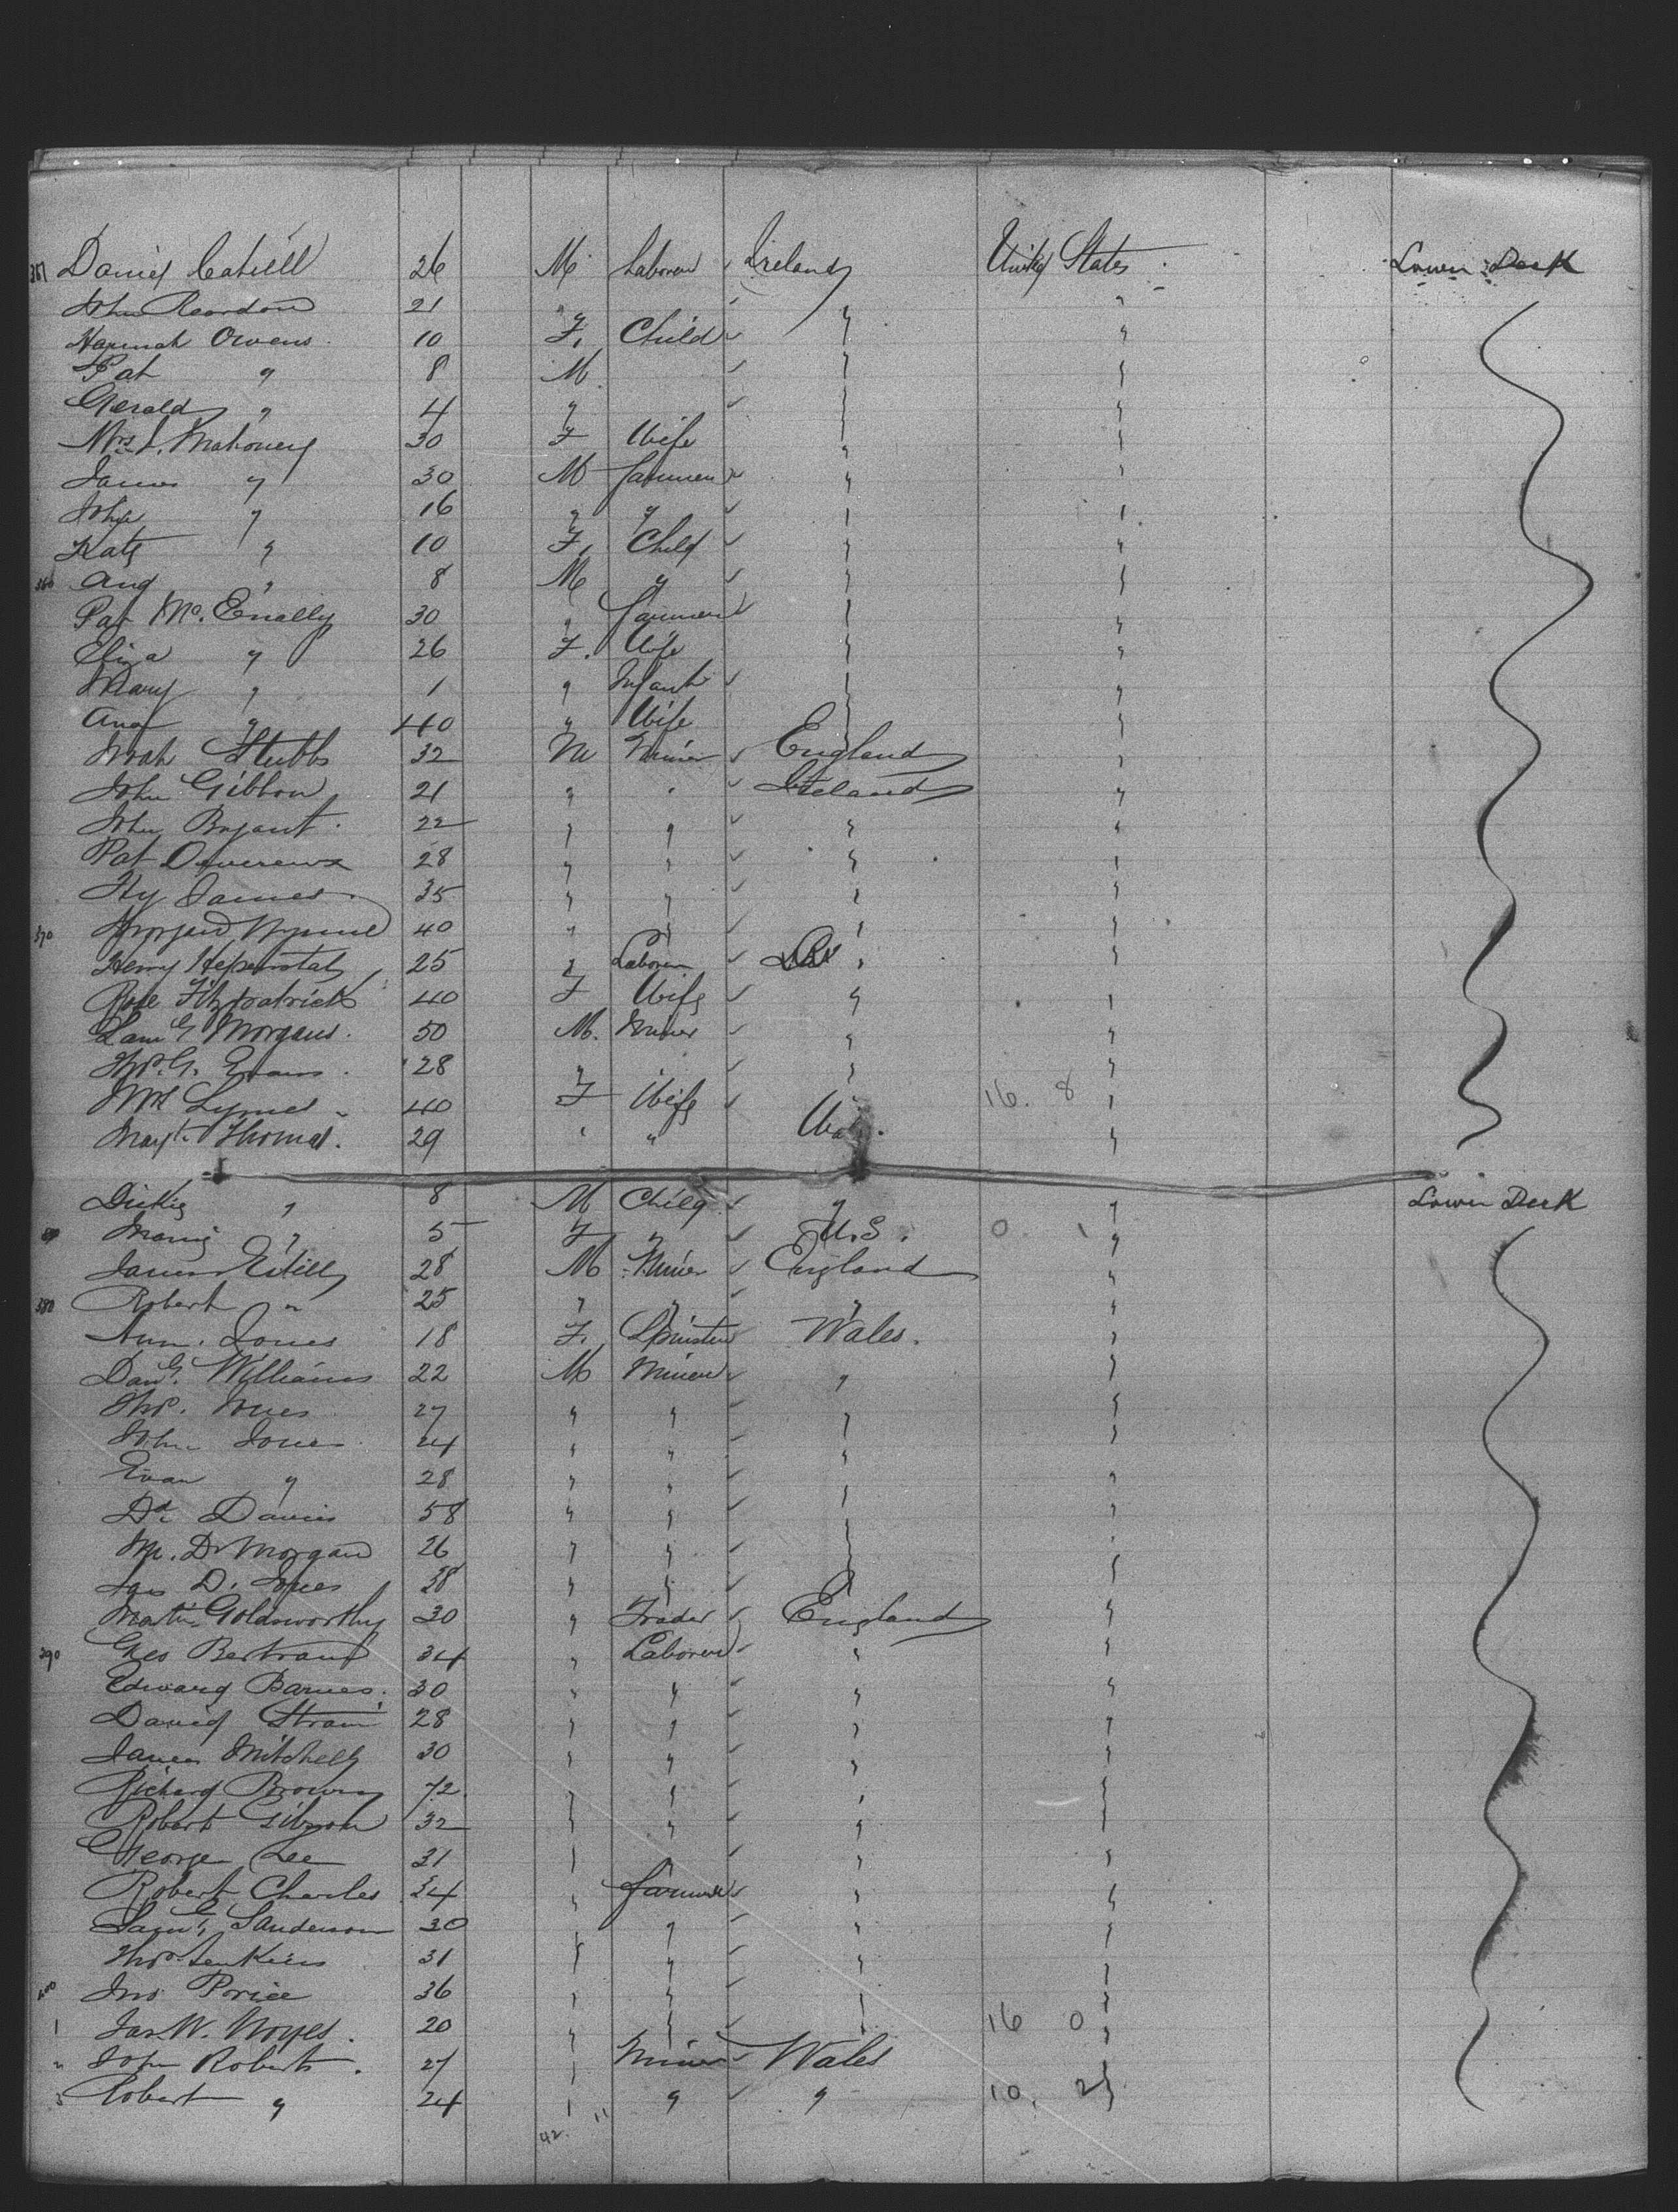 Daniel Cahill 26 M Laborer Ireland United States Lower Deck
John Reardon 21 " " " "
Hannah Owens 10 F. Child " "
Pat " 8 M " "
Gerald " 4 " " "
Mrs Mahoney 30 F Wife " "
James " 30 M Farmer " "
John " 16 " " " "
Kate " 10 F. Child " "
360 Ang " 8 M " " "
Pat Mc. Enally 30 " Farmer " "
Eliza " 26 F. Wife " "
Mary " 1 " Infant " "
Ann " 40 " Wife " "
Noah Stubbs 32 M Miner England "
John Gibbon 21 " " Ireland "
John Bryant 22 " " " "
Pat Devereux 28 " " " "
Hy James 35 " " " "
370 Wynne 40 " " " "
Henry 25 " Laborer " "
Rose Fitzpatrick 40 F Wife " "
Saml Morgans. 50 M. Miner " "
Thos. G. Evans. 28 " " " "
Mrs 40 F Wife 16. 8 "
Margt. Thomas. 29 " " "
Dickie " 8 M Child " " Lower Deck
" 5 F " U.S. 0. "
James 28 M Miner England "
380 Robert " 25 " " " "
Ann. Jones 18 F. Spinster Wales. "
Danl. Williams 22 M Miner " "
Thos. Jones 27 " " " "
John Jones 24 " " " "
Evan " 28 " " " "
Dd. Davies 58 " " " "
M. D. Morgan 26 " " " "
Jas D. Jones 38 " " " "
Martin Goldsworthy 30 " Trader England "
390 Geo Bertrand 34 " Laborer " "
Edward Barnes. 30 " " " "
David Strain 28 " " " "
James Mitchell 30 " " " "
Richard Brown 72 " " " "
Robert Gibson 32 " " " "
George Lee 31 " " " "
Robert Charles 34 " Farmer " "
Saml. Sanderson 30 " " " "
Thos Jenkins 31 " " " "
400 Jno Price 36 " " " "
1 Jas. W. Noyes. 20 " " " 16 0 "
2 John Roberts. 27 " Miner Wales "
3 Robert " 24 " " " 10. 2 "
42. 11